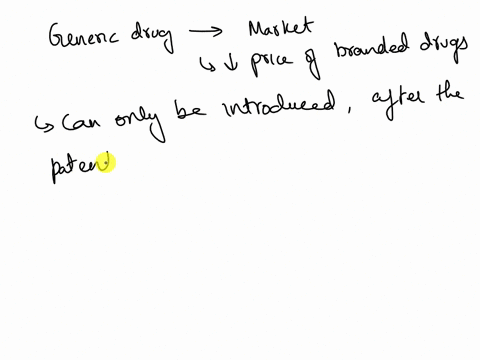 Generic drug → Market
↳ ↓ price of branded drugs
↳ can only be introduced, after the
paten